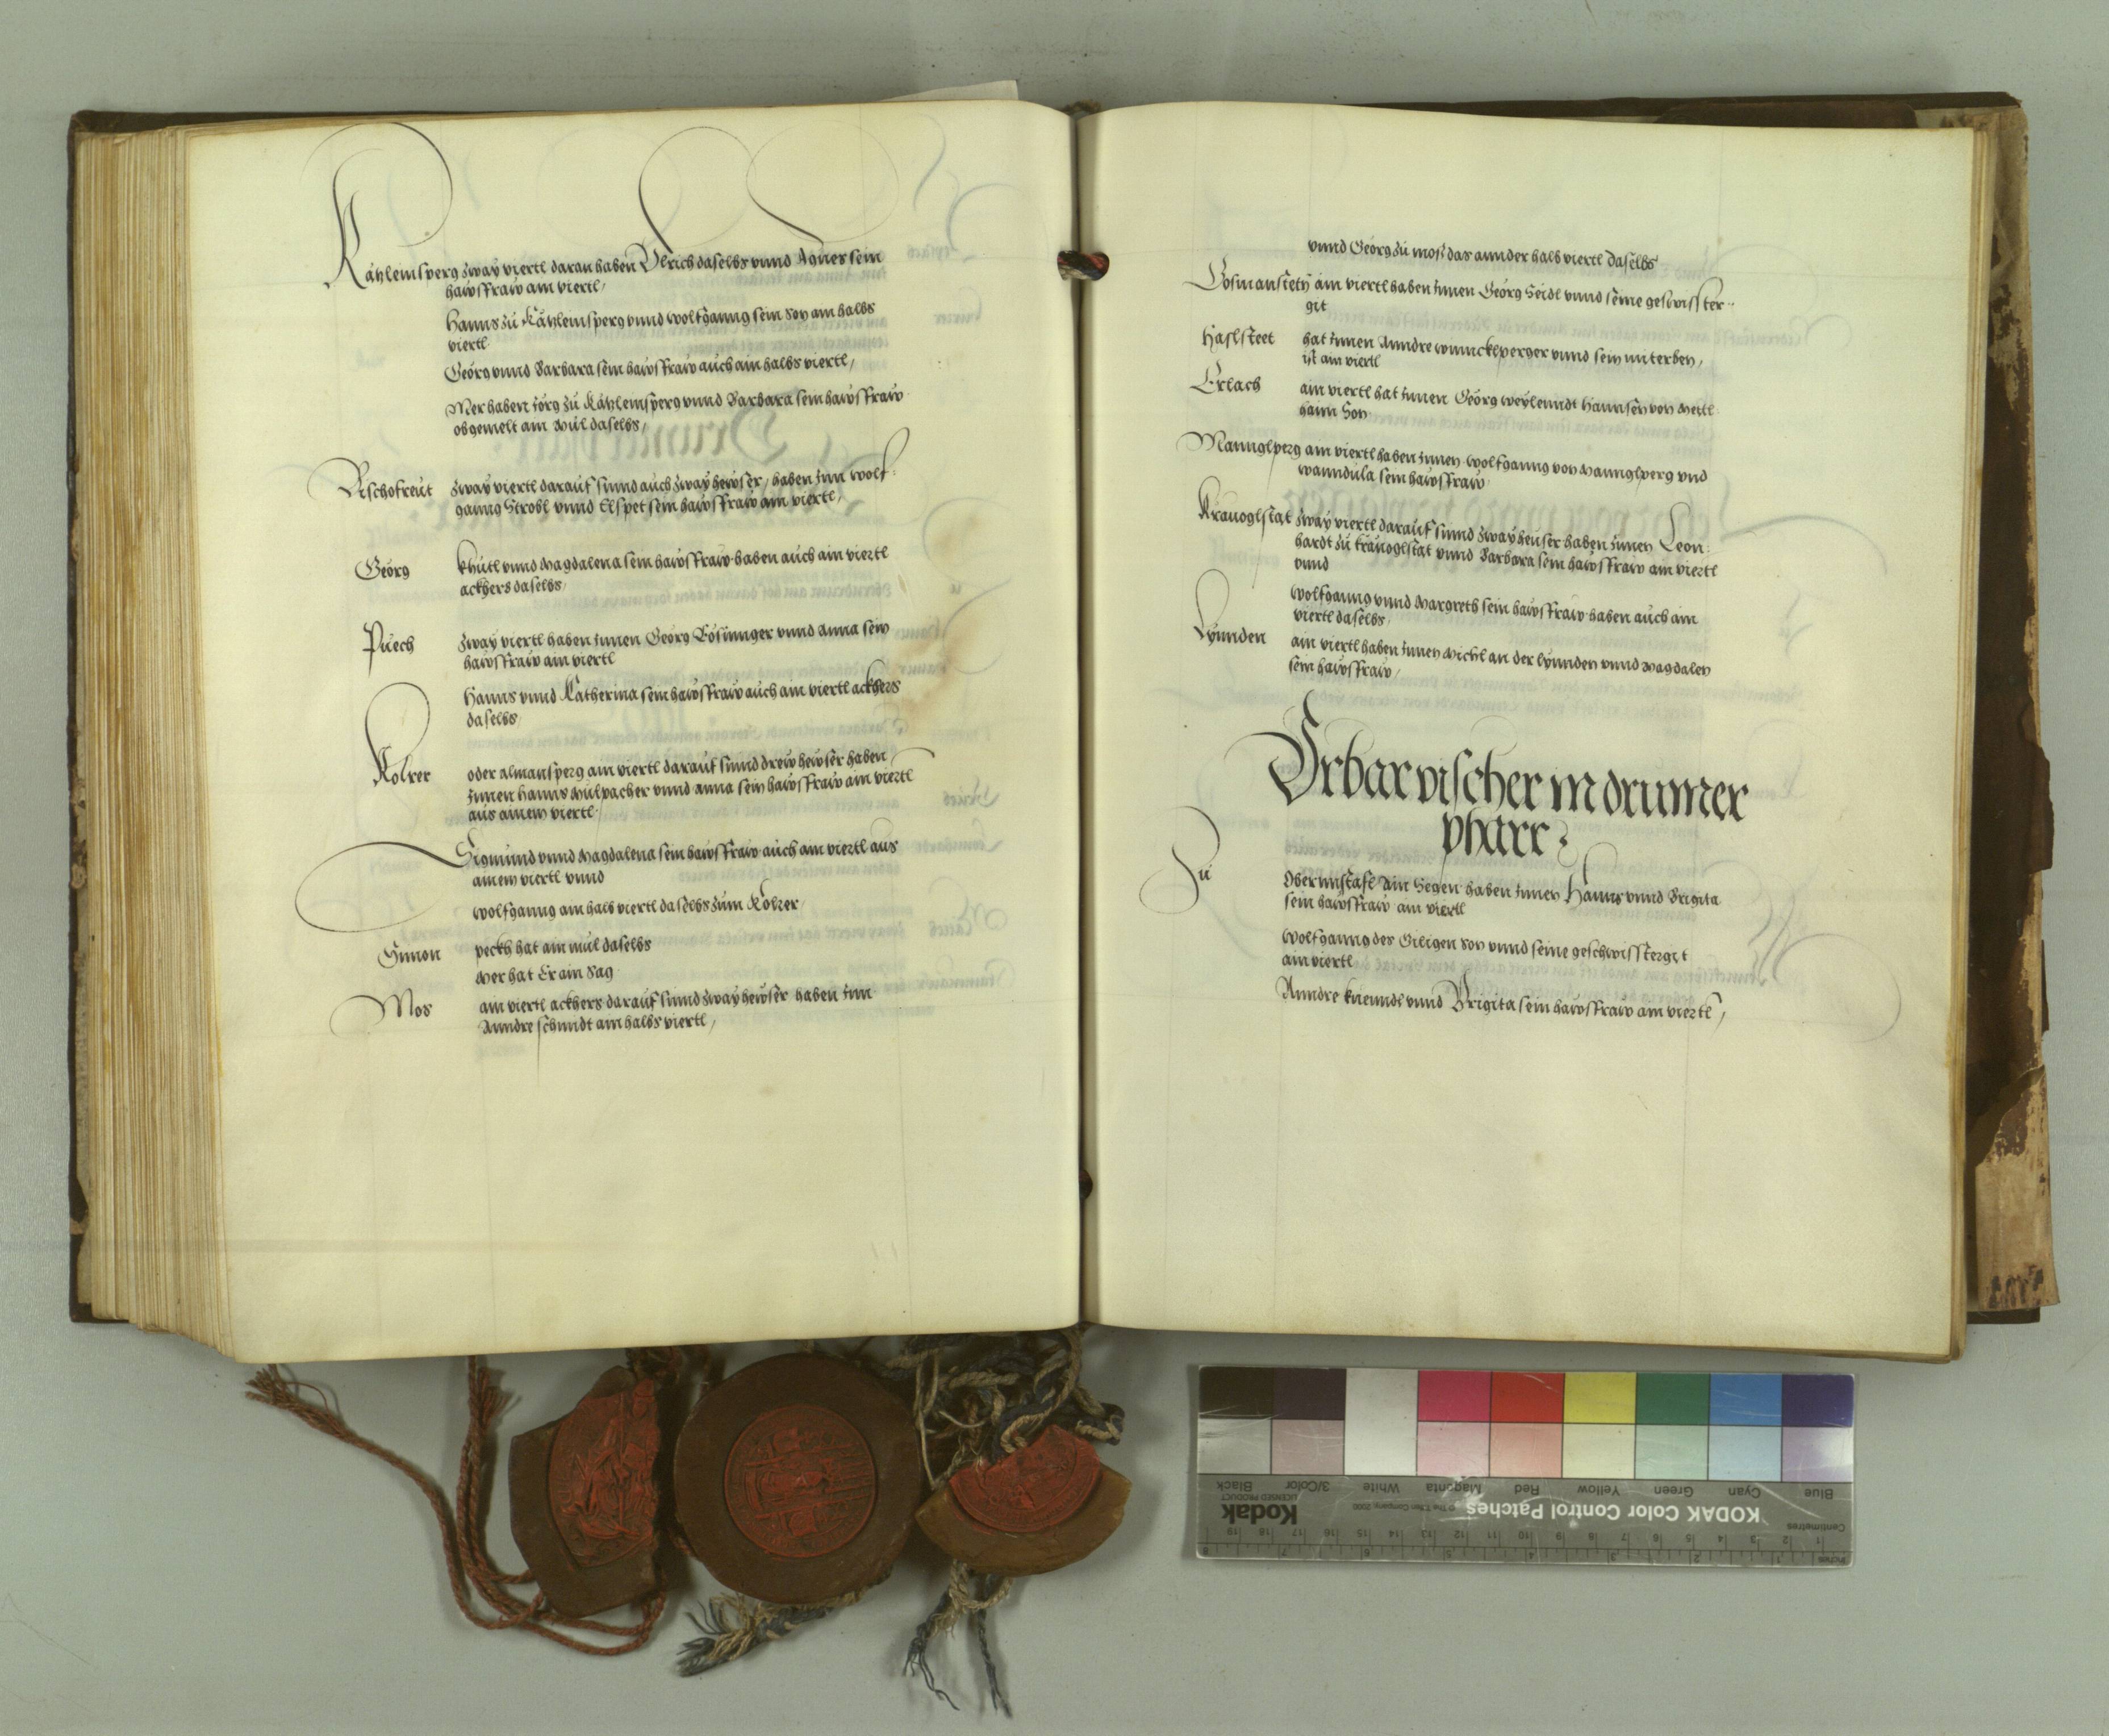 Räzleinsperg zway viertl daran haben Ulrich daselbs vnnd Agnes sein
hawsfraw ain viertl /
Hanns zu Räzleinsperg vnnd Wolfganng sein Son ain halbs
viertl
Georg vnnd Barbara sein hawsfraw auch ain halbs viertl /
Mer haben Jorg zu Räzleinsperg vnnd Barbara sein hawsfraw
obgemelt ain Mül daselbs /
Bischofreut zway viertl darauf sinnd auch zway hewser / haben Inn Wolf=
ganng Strobl vnnd Elspet sein hawsfraw ain viertl /
Georg khütl vnnd Magdalena sein hawsfraw haben auch ain viertl
ackhers daselbs /
Püech zway viertl haben Innen Georg Pösinnger vnnd Anna sein
hawsfraw ain viertl
Hanns vnnd Katherina sein hawsfraw auch ain viertl ackhers
daselbs
Kolrer oder Almansperg ain viertl darauf sinnd drew hewser haben
Innen Hanns Mülpacher vnnd Anna sein hawsfraw ain viertl
aus ainem viertl
Sigmund vnnd Magdalena sein hawsfraw auch ain viertl aus
ainem viertl vnnd
Wolfganng ain halb viertl daselbs zum Kolrer
Simon peckh hat ain mül daselbs
Mer hat Er ain Sag
Mos ain viertl ackhers darauf sinnd zway hewser haben Inn
Anndre schmidt ain halbs viertl /
vnnd Georg zu mos das annder halb viertl daselbs
Gosmanstetn ain viertl haben Innen Georg Seidl vnnd seine geswisster=
git
Haslsteet hat Innen Anndre winnckelperger vnnd sein miterben /
ist ain viertl
Erlach ain viertl hat Innen Georg weylenndt Hannsen von Meitl
haim Son
Mannglperg ain viertl haben Innen Wolfganng von Mannglperg vnd
wanndula sein hawsfraw
Kranoglstat zway viertl darauf sinnd zway heuser haben Innen Leon=
hardt zu kranoglstat vnnd Barbara sein hawsfraw ain viertl
vnnd
Wolfganng vnnd Margreth sein hawsfraw haben auch ain
viertl daselbs
Lynnden ain viertl haben Innen Michl an der lynnden vnnd Magdalen
sein hawsfraw /
Urbar vischer in drumer
pharr
Zu Obernnstasl Ain Segen haben Innen Hanns vnnd Brigita
sein hawsfraw ain viertl
Wolfganng des Giligen Son vnnd seine geschwisstergit
ain viertl
Anndre kneundl vnnd Brigita sein hawsfraw ain viertl /
Kodak
LICENSED PRODUCT
KODAK Color Control Patches
Blue Cyan Green Yellow Red Magenta White 3/Color Black
Centimetres
Inches